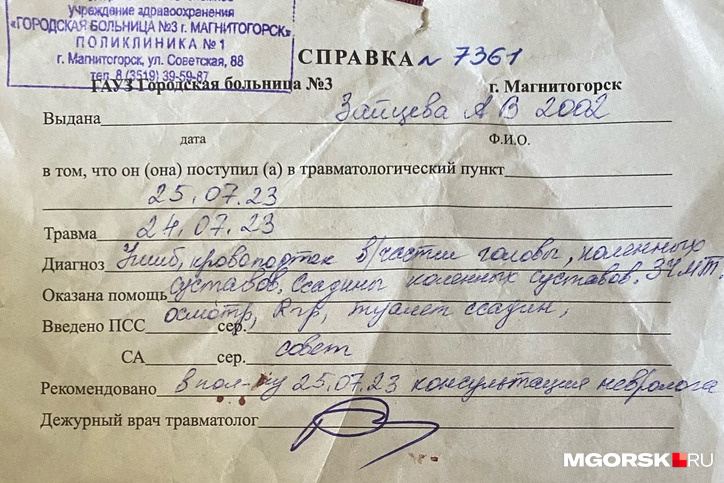 учреждение здравоохранения
«ГОРОДСКАЯ БОЛЬНИЦА №3 г. МАГНИТОГОРСК»
ПОЛИКЛИНИКА № 1
г. Магнитогорск, ул. Советская, 88
тел. 8 (3519) 39-59-87
СПРАВКА № 7361
ГАУЗ Городская больница №3 г. Магнитогорск
Выдана Зайцева А В 2002
дата Ф.И.О.
в том, что он (она) поступил (а) в травматологический пункт
25.07.23
Травма 24.07.23
Диагноз Ушиб, кровоподтек в/части головы, коленных
суставов. Ссадины коленных суставов. ЗЧМТ.
Оказана помощь осмотр, R-гр, туалет ссадин,
Введено ПСС сер.
совет
СА сер.
Рекомендовано в пол-ку 25.07.23 консультация невролога
Дежурный врач травматолог
MGORSK.RU